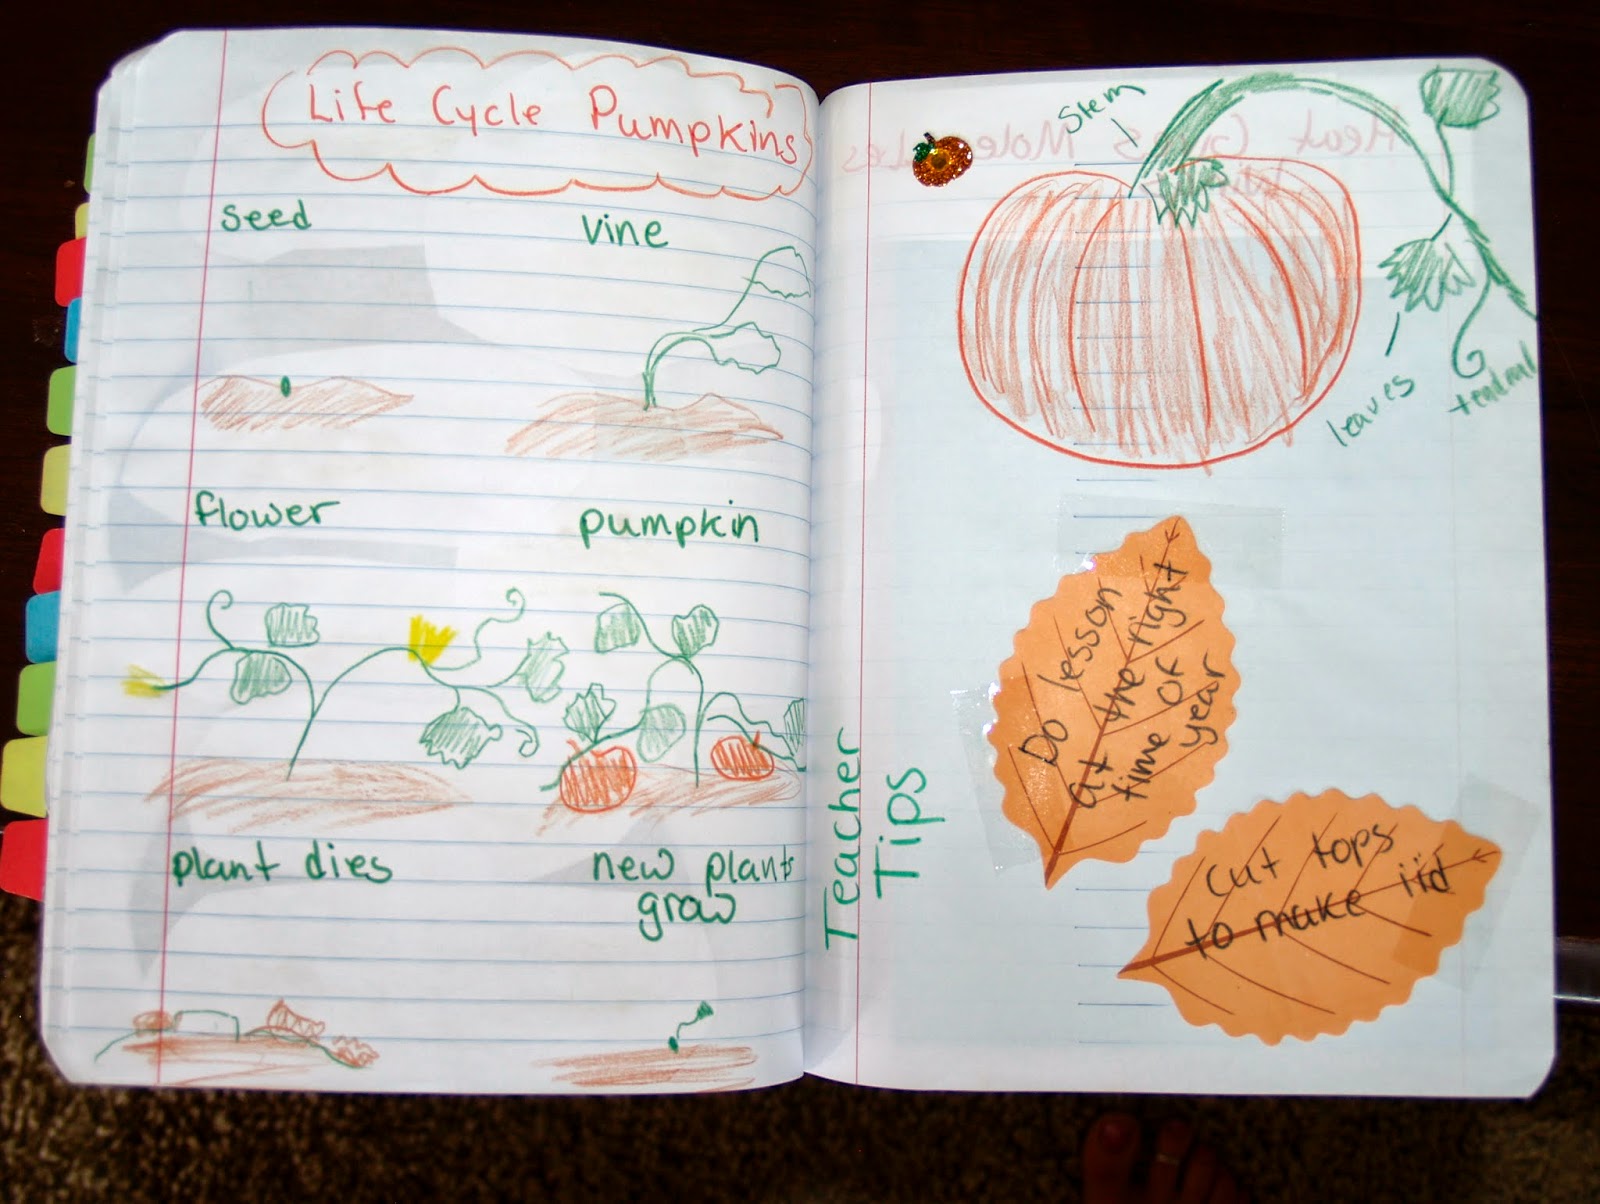 Life Cycle Pumpkins
seed
vine
flower
pumpkin
plant dies
new plants
grow
Stem
leaves
Teacher
Tips
Do lesson
at the right
time of
year
Cut tops
to make lid